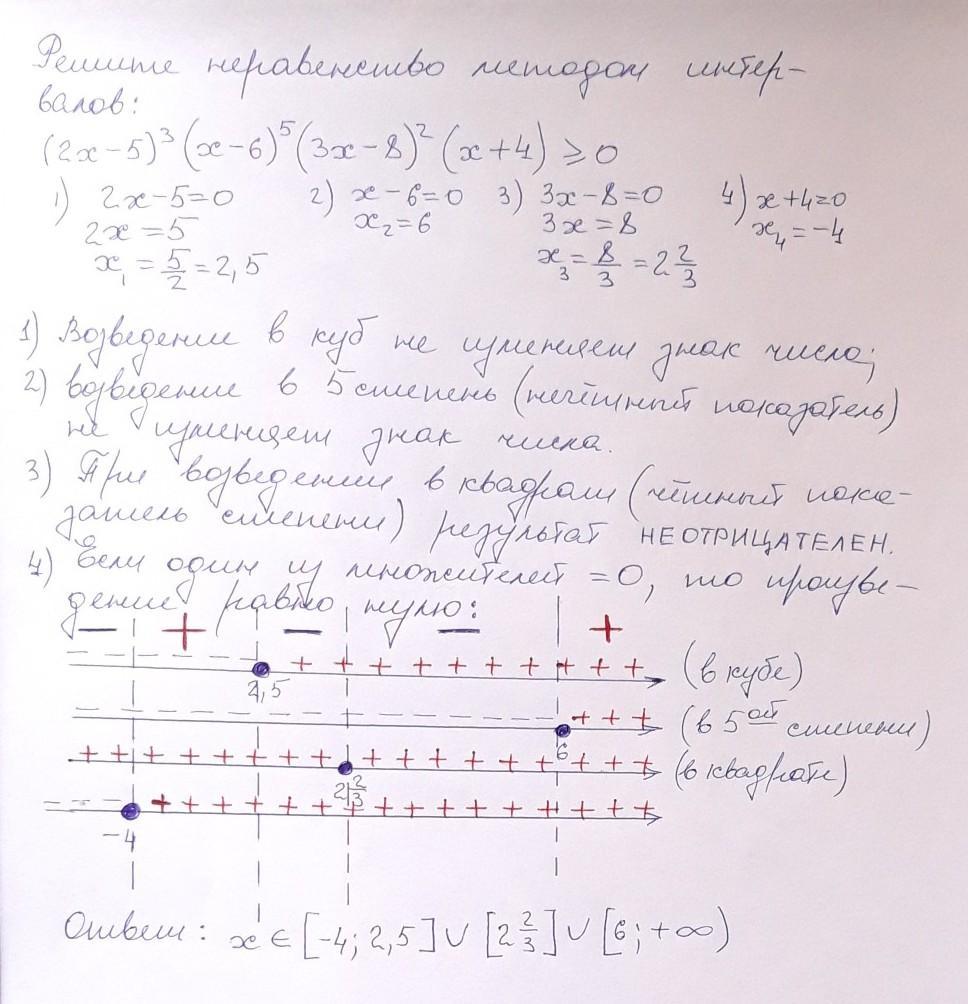 Решите неравенство методом интер-
валов:
(2x-5)³(x-6)⁵(3x-8)²(x+4)⩾0
1) 2x-5=0 2) x-6=0 3) 3x-8=0 4) x+4=0
2x=5 x₂=6 3x=8 x₄=-4
x₁=5/2=2,5 x₃=8/3=2 2/3
1) Возведение в куб не изменяет знак числа;
2) возведение в 5 степень (нечётный показатель)
не изменяет знак числа.
3) При возведении в квадрат (чётный пока-
затель степени) результат НЕОТРИЦАТЕЛЕН.
4) Если один из множителей =0, то произве-
дение равно нулю:
− + − − +
− − − − − + + + + + + + + + (в кубе)
2,5
− − − − − − − − − − − − + + + (в 5ой степени)
6
+ + + + + + + + + + + + + + + + + + + (в квадрате)
2 2/3
− − − + + + + + + + + + + + + + + + + +
-4
Ответ: x ∈ [-4; 2,5] ∪ [2 2/3] ∪ [6; +∞)